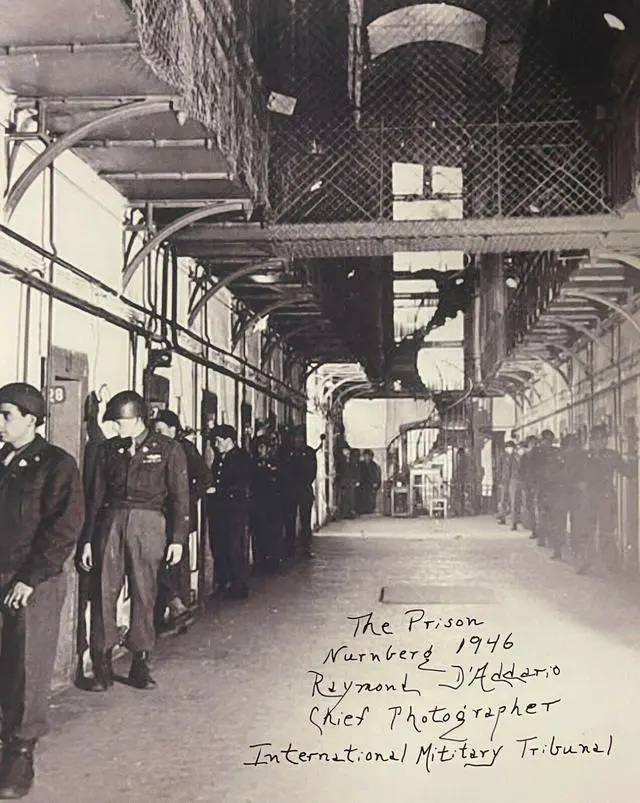 28
The Prison
Nurnberg 1946
Raymond D'Addario
Chief Photographer
International Military Tribunal